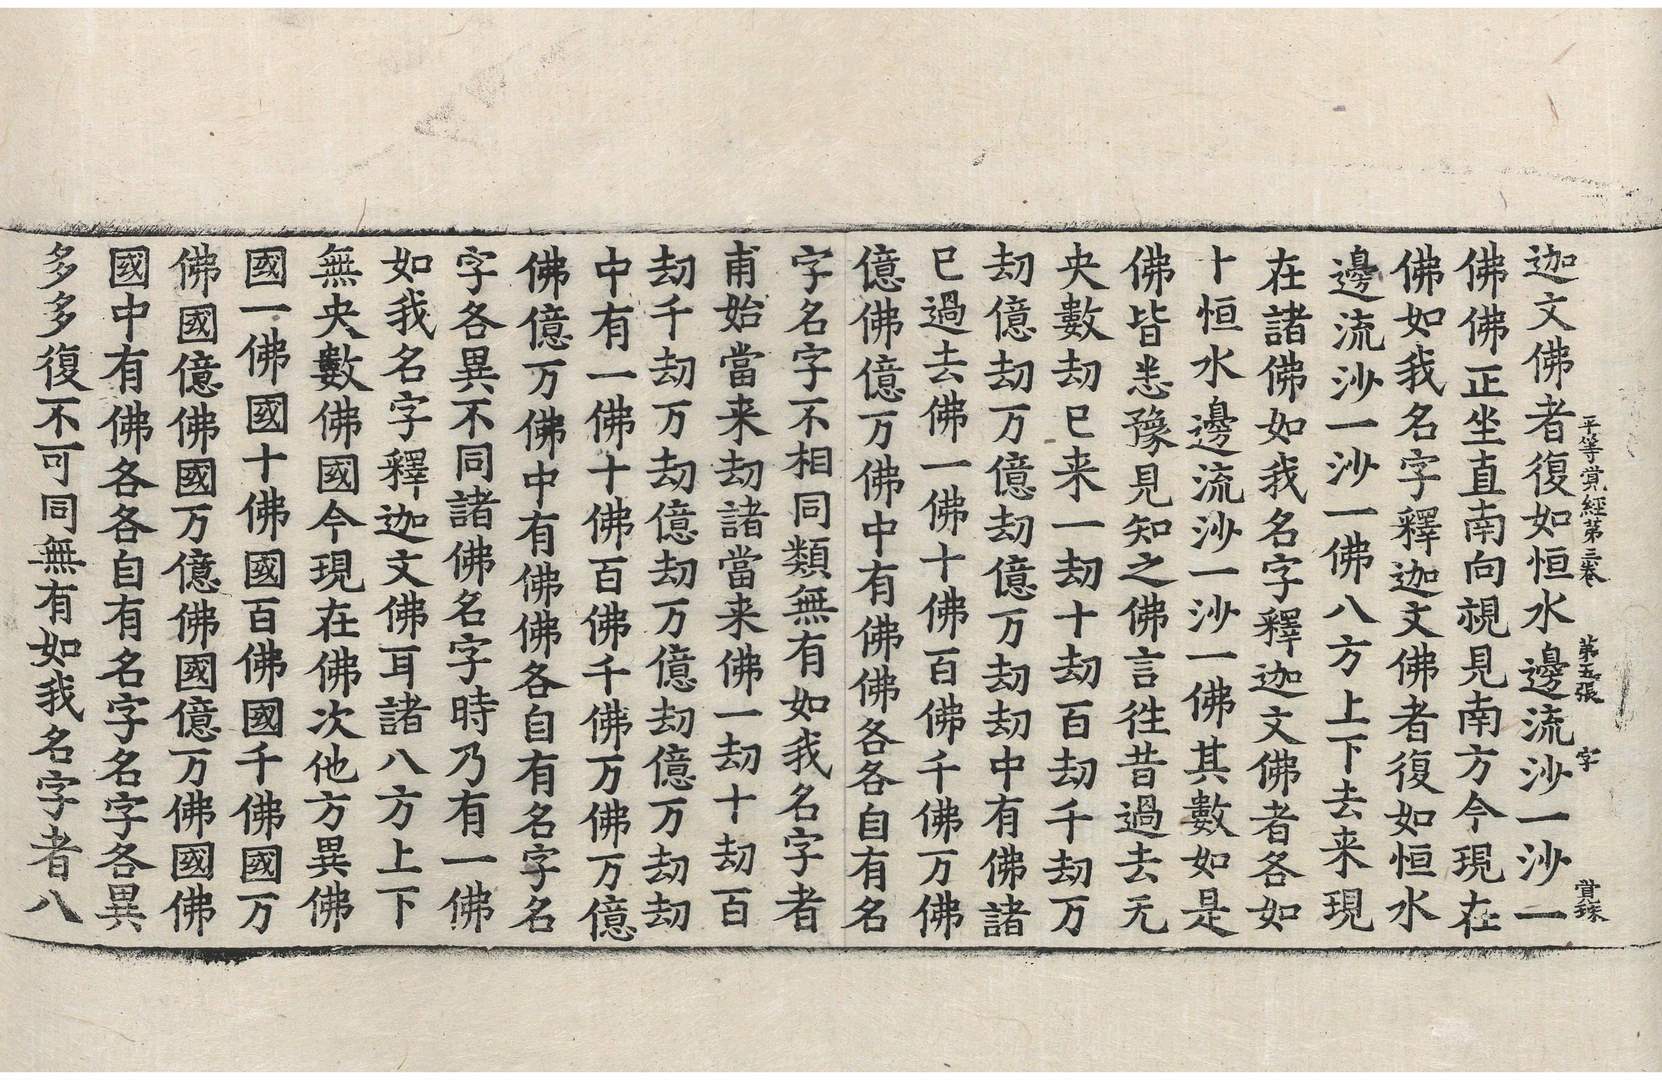 平等覺經第三卷 第五張 字 覺珠
迦文佛者復如恒水邊流沙一沙一
佛佛正坐直南向視見南方今現在
佛如我名字釋迦文佛者復如恒水
邊流沙一沙一佛八方上下去来現
在諸佛如我名字釋迦文佛者各如
十恒水邊流沙一沙一佛其數如是
佛皆悉豫見知之佛言徃昔過去无
央數劫已来一劫十劫百劫千劫万
劫億劫万億劫億万劫劫中有佛諸
已過去佛一佛十佛百佛千佛万佛
億佛億万佛中有佛佛各各自有名
字名字不相同類無有如我名字者
甫始當来劫諸當来佛一劫十劫百
劫千劫万劫億劫万億劫億万劫劫
中有一佛十佛百佛千佛万佛万億
佛億万佛中有佛佛各自有名字名
字各異不同諸佛名字時乃有一佛
如我名字釋迦文佛耳諸八方上下
無央數佛國今現在佛次他方異佛
國一佛國十佛國百佛國千佛國万
佛國億佛國万億佛國億万佛國佛
國中有佛各各自有名字名字各異
多多復不可同無有如我名字者八